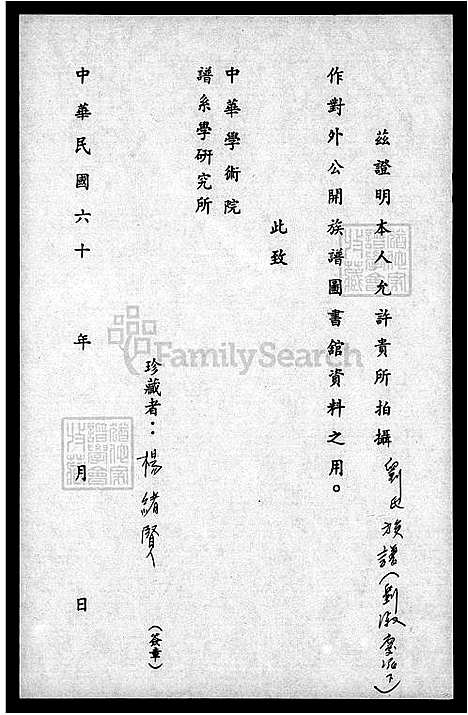 茲證明本人允許貴所拍攝劉氏族譜(劉淑臺派下)
作對外公開族譜圖書館資料之用。
此致
中華學術院
譜系學研究所
珍藏者：楊緒賢
(簽章)
中華民國六十 年 月 日
FamilySearch